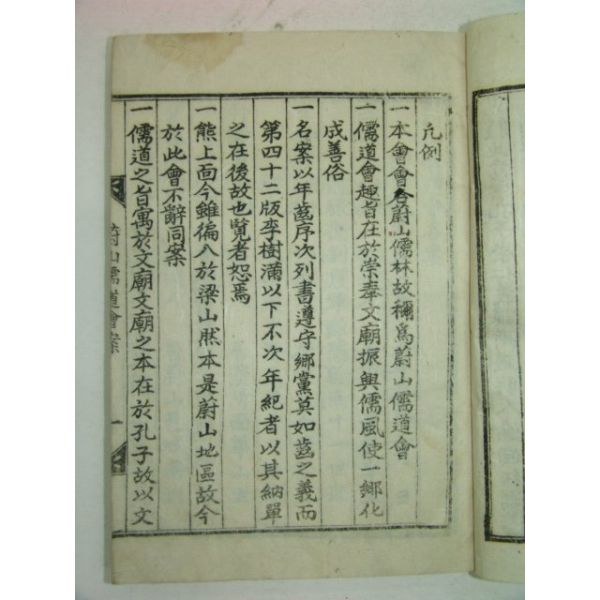 凡例
一本會會合蔚山儒林故稱爲蔚山儒道會
一儒道會趣旨在於崇奉文廟振興儒風使一鄉化
成善俗
一名案以年齒序次列書遵守鄉黨莫如齒之義而
第四十二版李樹滿以下不次年紀者以其納單
之在後故也覽者恕焉
一熊上面今雖偏入於梁山然本是蔚山地區故今
於此會不辭同案
一儒道之旨寓於文廟文廟之本在於孔子故以文
蔚山儒道會案 一